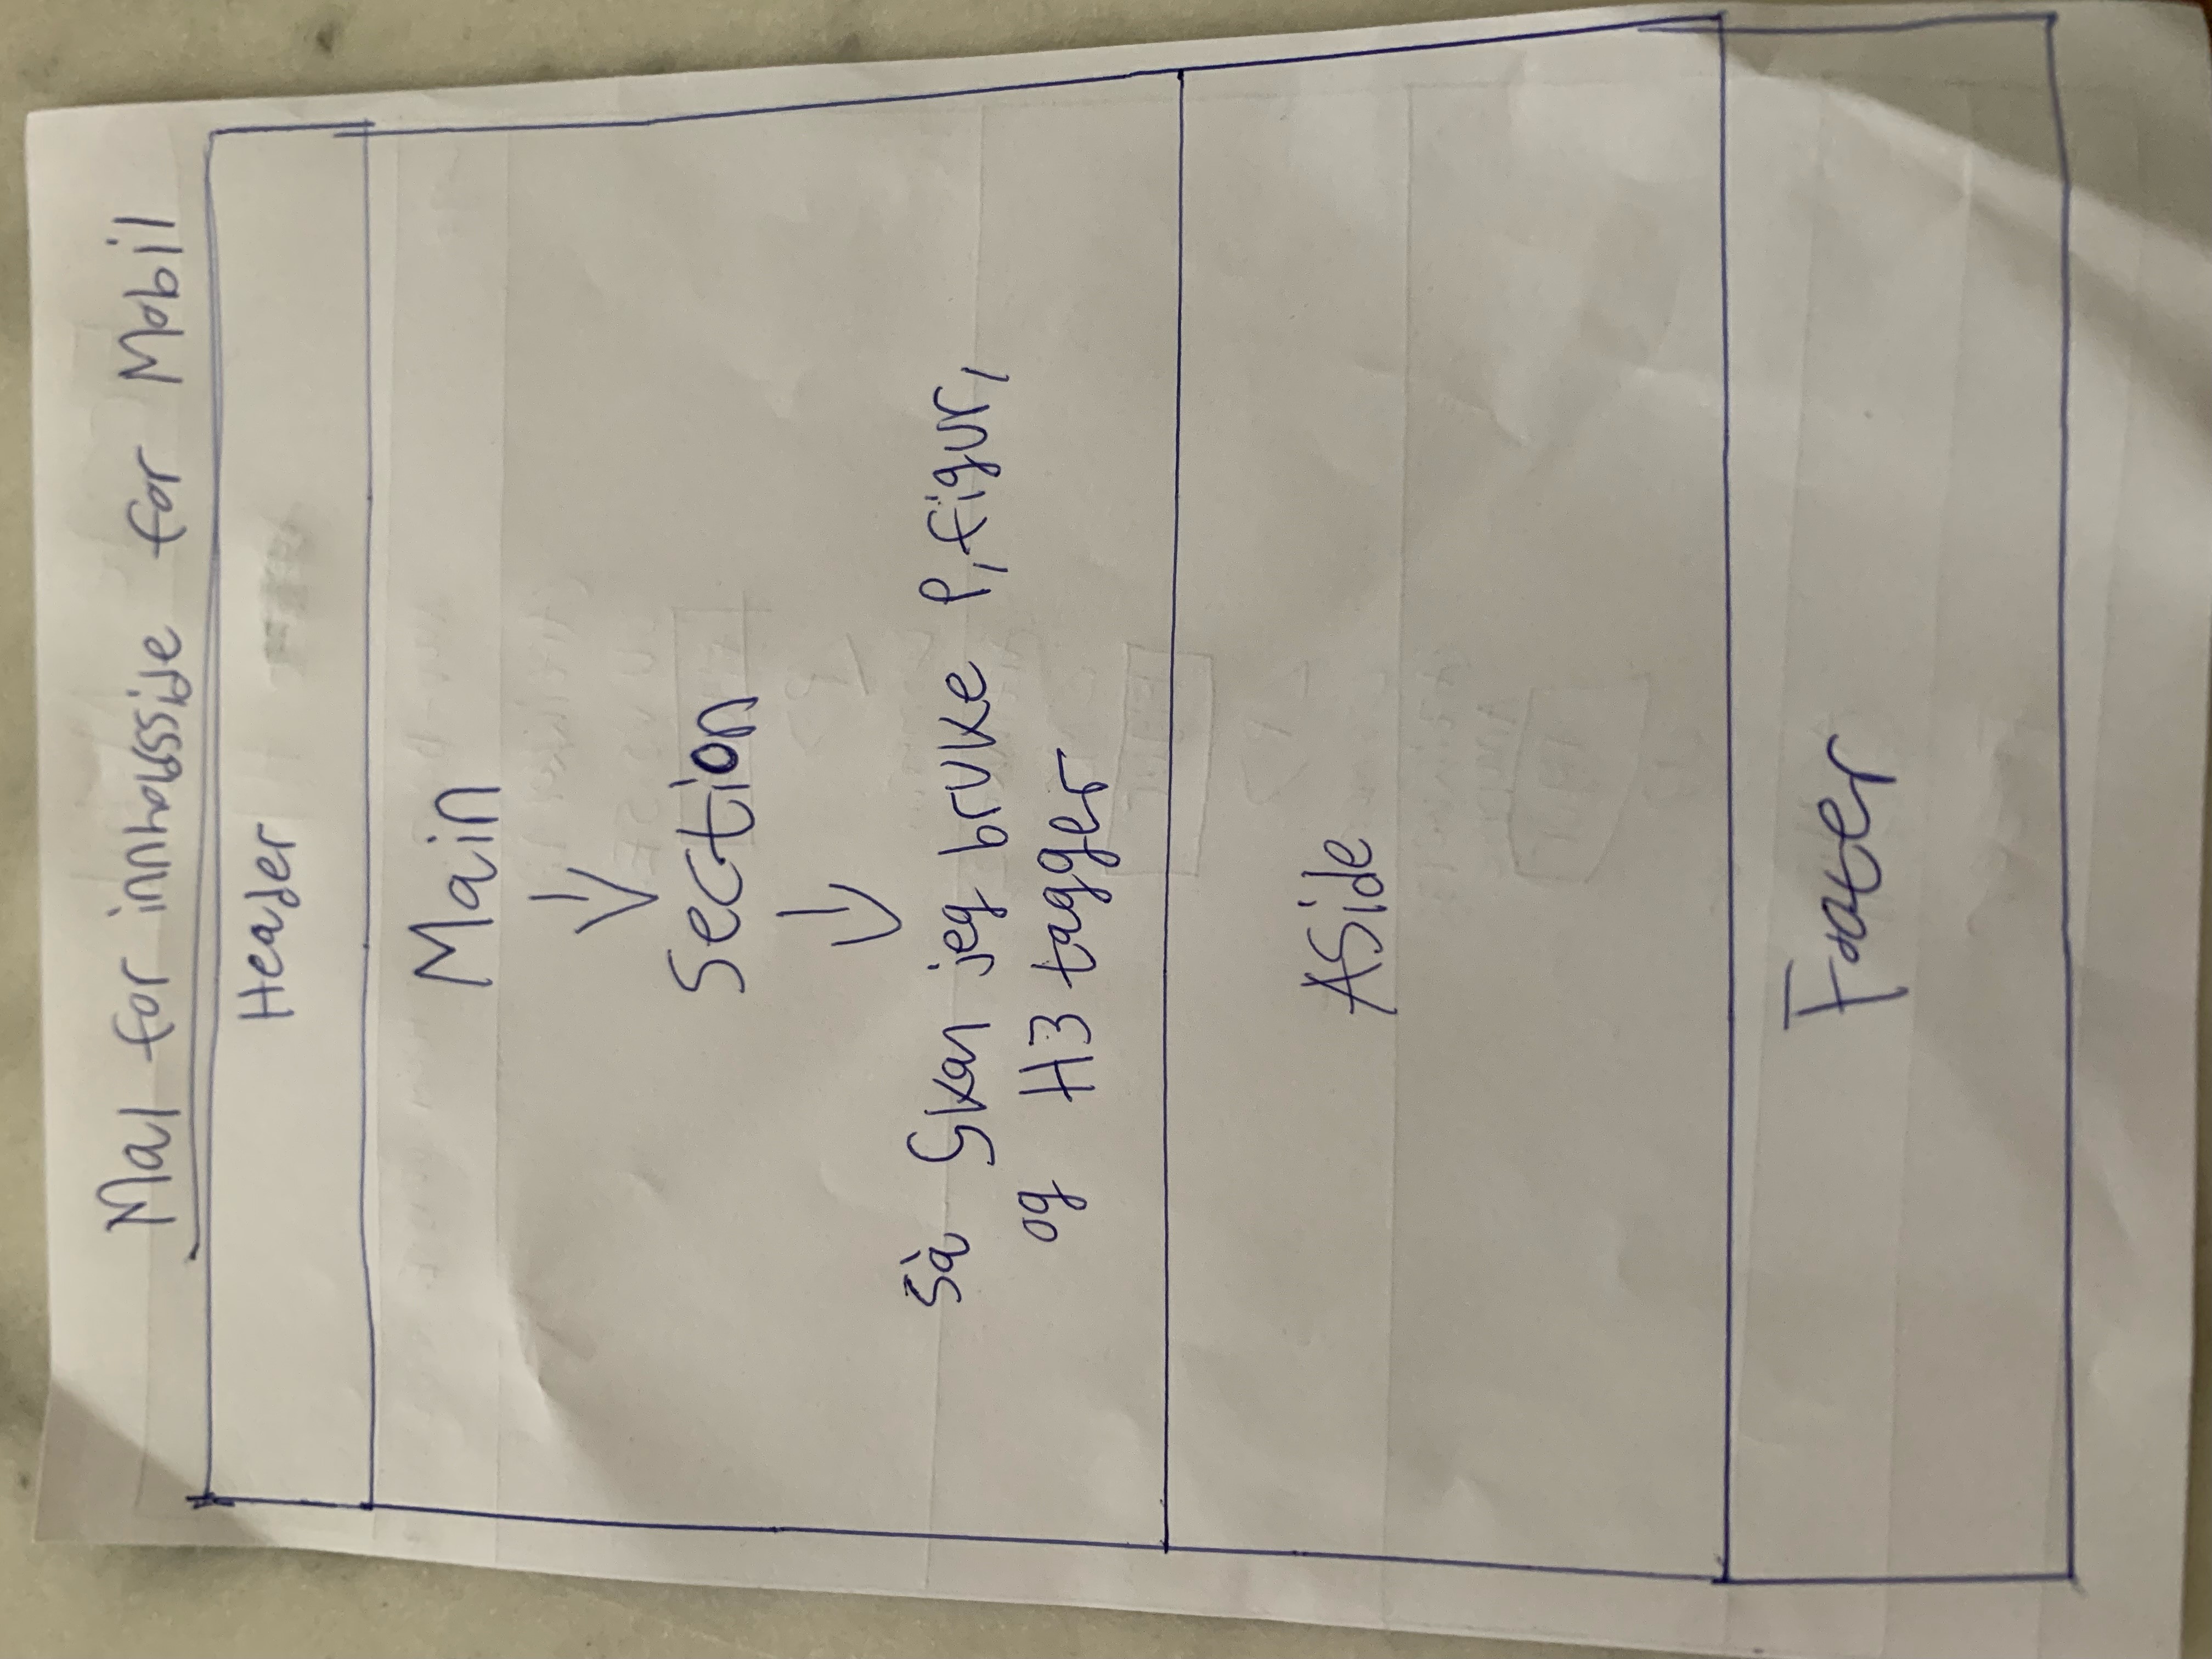 Mal for innholdsside for Mobil
Header
Main
Section
Så Skal jeg bruke P, figur,
og H3 tagger
Aside
Footer